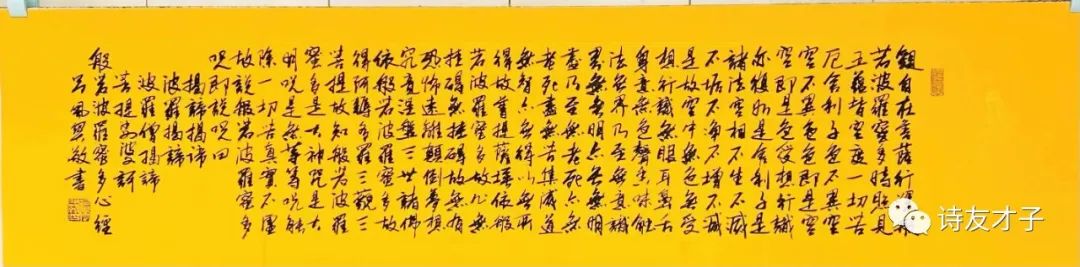 觀自在菩薩行深般
若波羅蜜多時照見
五蘊皆空度一切苦
厄舍利子色不異空
空不異色色即是空
空即是色受想行識
亦復如是舍利子是
諸法空相不生不滅
不垢不淨不增不減
是故空中無色無受
想行識無眼耳鼻舌
身意無色聲香味觸
法無界乃至無意識
界無無明亦無無明
盡乃至無老死亦無
老死盡無苦集滅道
無智亦無得以無所
得故菩提薩埵依般
若波羅蜜多故心無
挂礙無挂礙故無有
恐怖遠離顛倒夢想
究竟涅槃三世諸佛
依般若波羅蜜多故
得阿耨多羅三藐三
菩提故知般若波羅
蜜多是大神咒是大
明咒是無等等咒能
除一切苦真實不虛
故說般若波羅蜜多
呪即說呪曰
揭諦揭諦
波羅揭諦
波羅僧揭諦
菩提薩婆訶
般若波羅蜜多心經
敏書
诗友才子